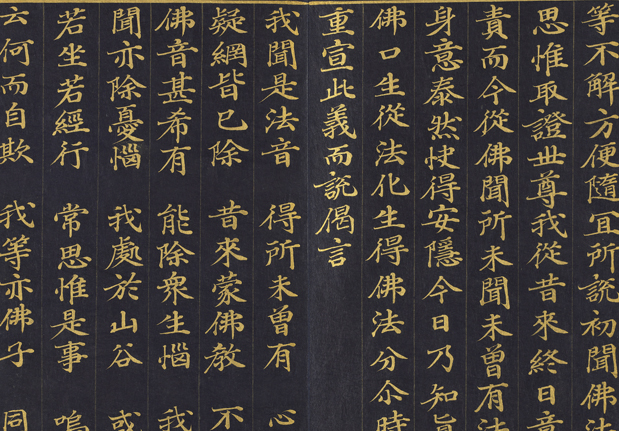 等不解方便隨冝所説初聞佛法
思惟取證世尊我從昔來終日竟
責而今從佛聞所未聞未曽有法
身意泰然快得安隱今日乃知真
佛口生從法化生得佛法分尒時
重宣此義而説偈言
我聞是法音 得所未曽有 心
疑網皆已除 昔來蒙佛教 不
佛音甚希有 能除衆生惱 我
聞亦除憂惱 我處於山谷 或
若坐若經行 常思惟是事 嗚
云何而自欺 我等亦佛子 同